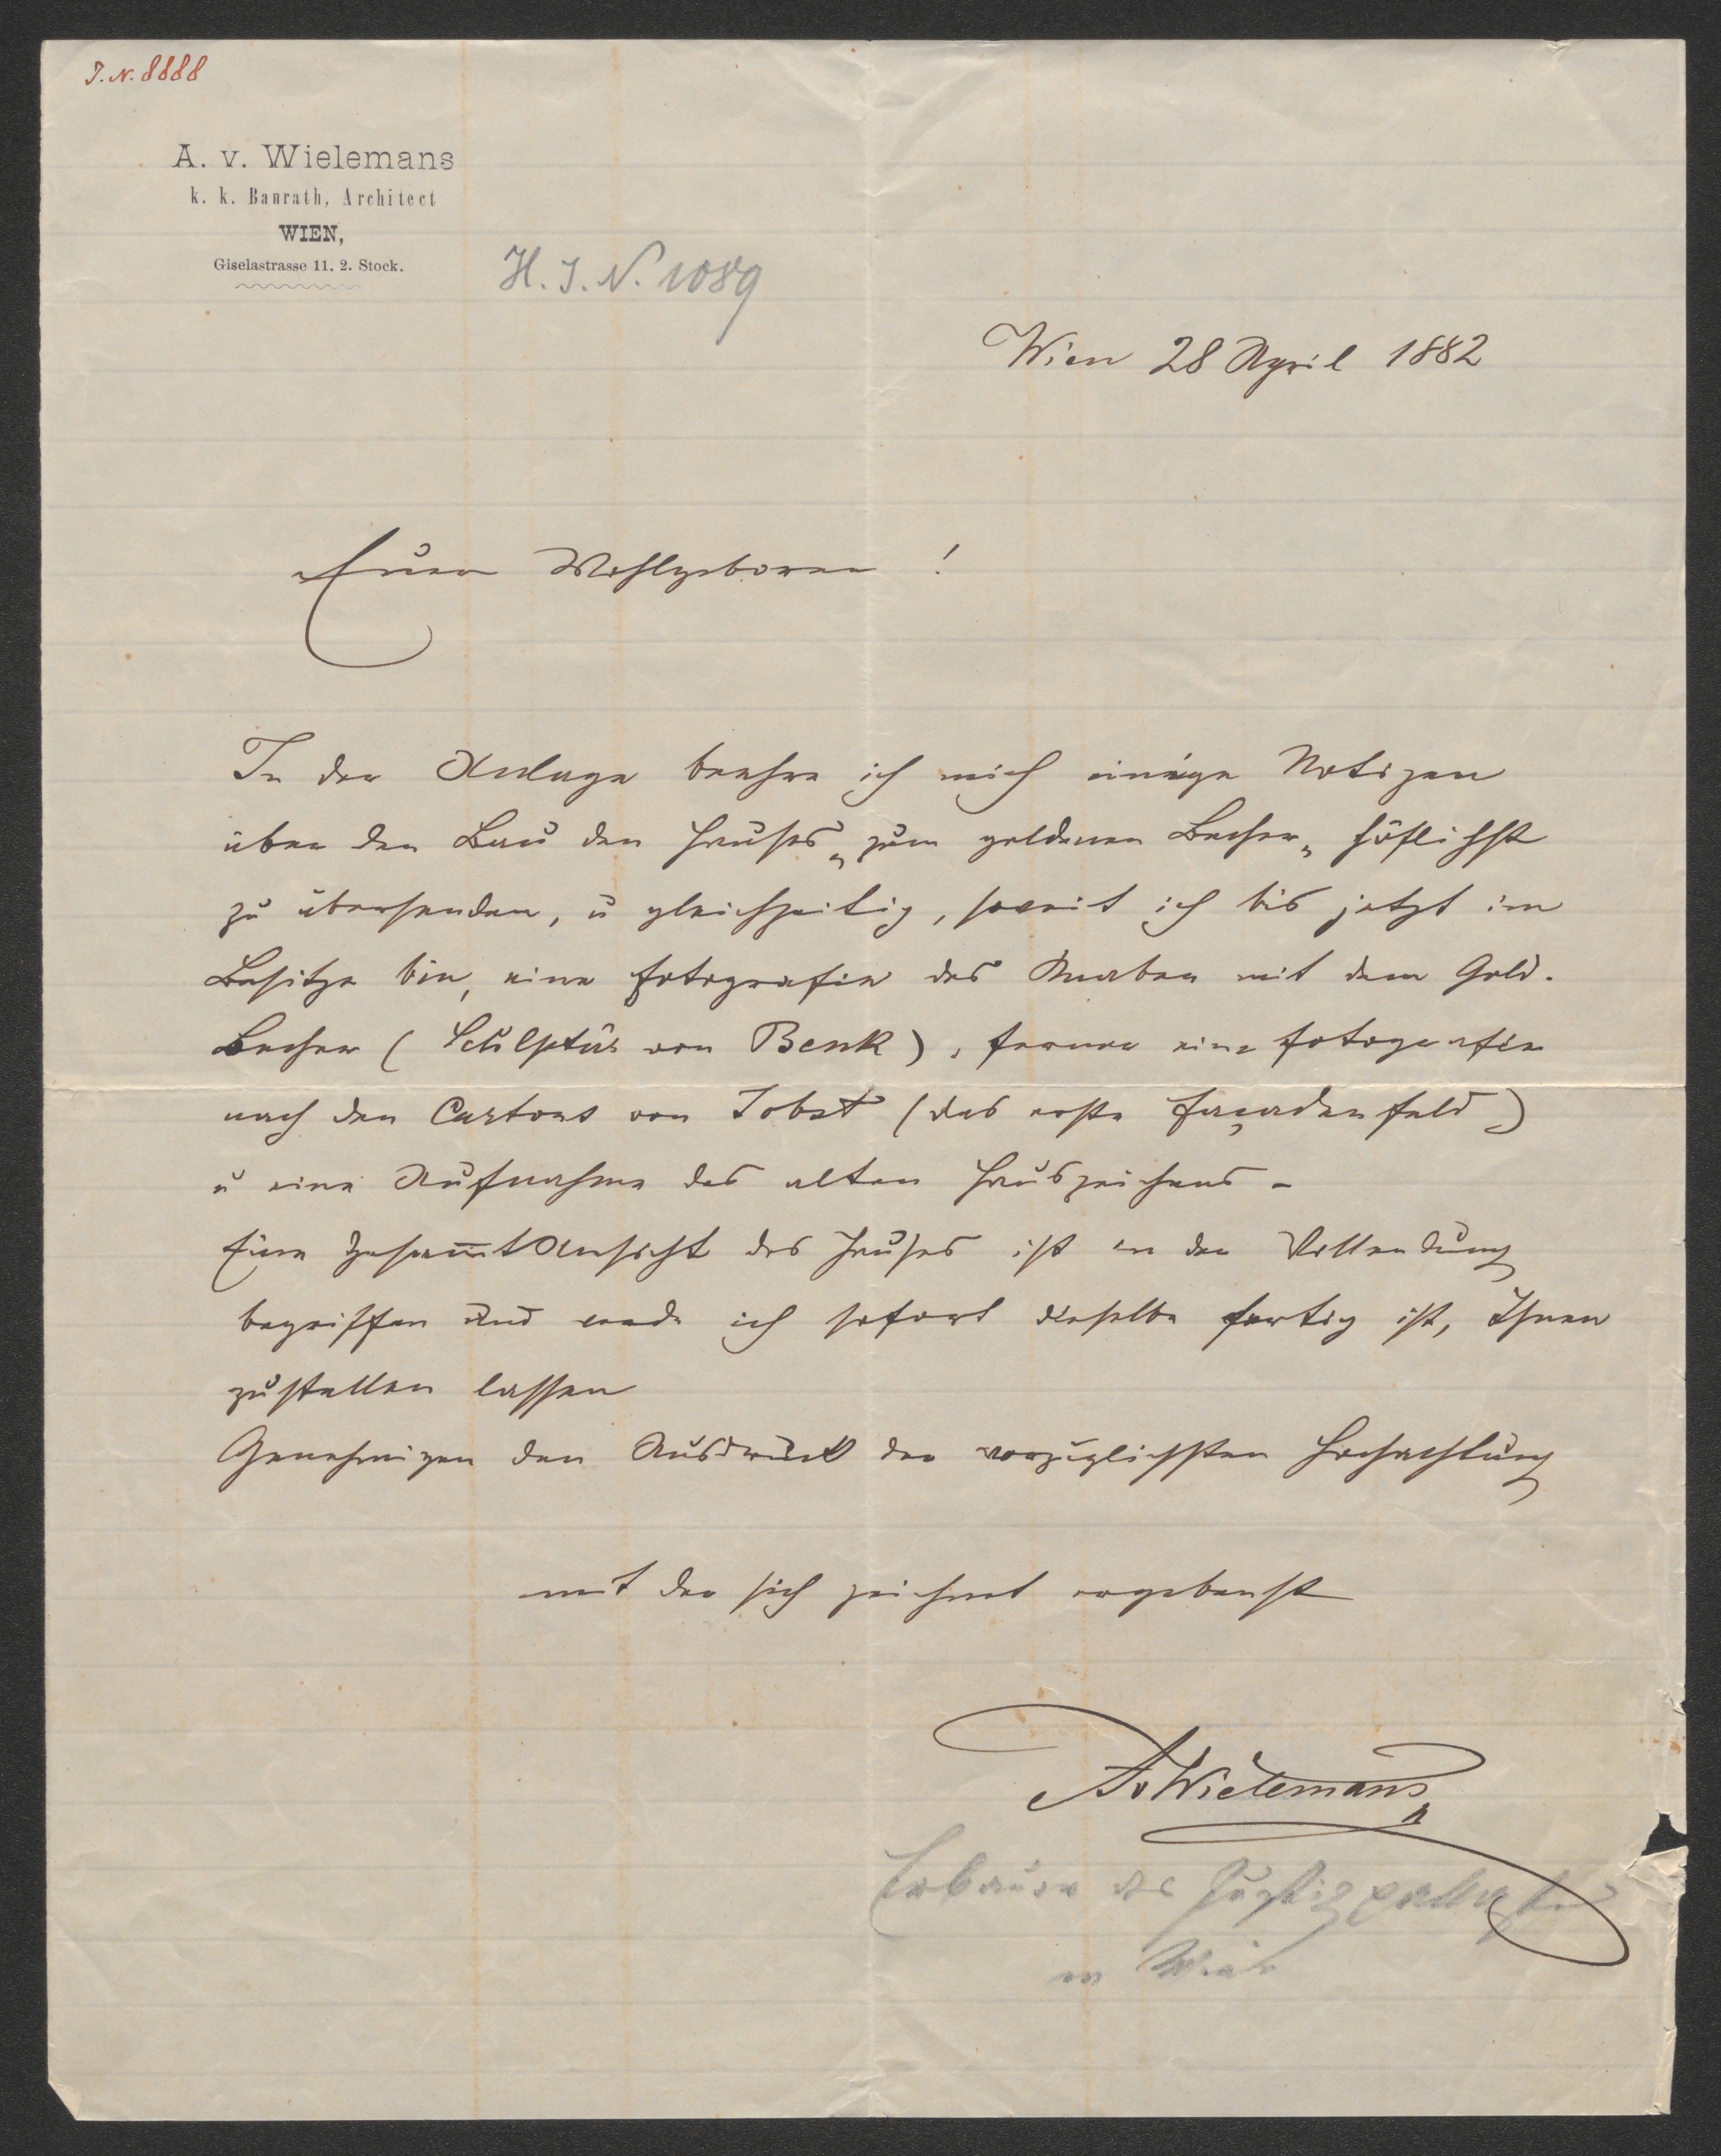 I. N. 8888
A. v. Wielemans
k. k. Baurath, Architect
WIEN,
Giselastrasse 11. 2. Stock.
H. I. N. 1089
Wien 28 April 1882
Euer Wohlgeboren !
In der Anlage beehre ich mich einige Notizen
über den Bau des Hauses „zum goldenen Becher„ höflichst
zu übersenden, u gleichzeitig, soweit ich bis jetzt im
Besitze bin, eine Fotografie des Knaben mit dem Gold.
Becher ( Sculptur von Benk ), ferner eine Fotografie
nach den Cartons von Jobst (das erste Façadenfeld)
u eine Aufnahme des alten Hauszeichens -
Eine Gesam̅tAnsicht des Hauses ist in der Vollendung
begriffen und werde ich sofort dieselbe fertig ist, Ihnen
zustellen lassen
Genehmigen den Ausdruck der vorzüglichsten Hochachtung
mit der sich zeichnet ergebenst
AvWielemans
Erbauer des Justizpallastes
in Wien